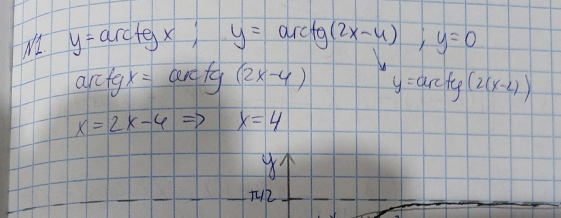 №1. y = arctg x ; y = arctg(2x-4) ; y=0
arctg x = arctg (2x-4) y = arctg(2(x-2))
x = 2x-4 => x = 4
y
π/2